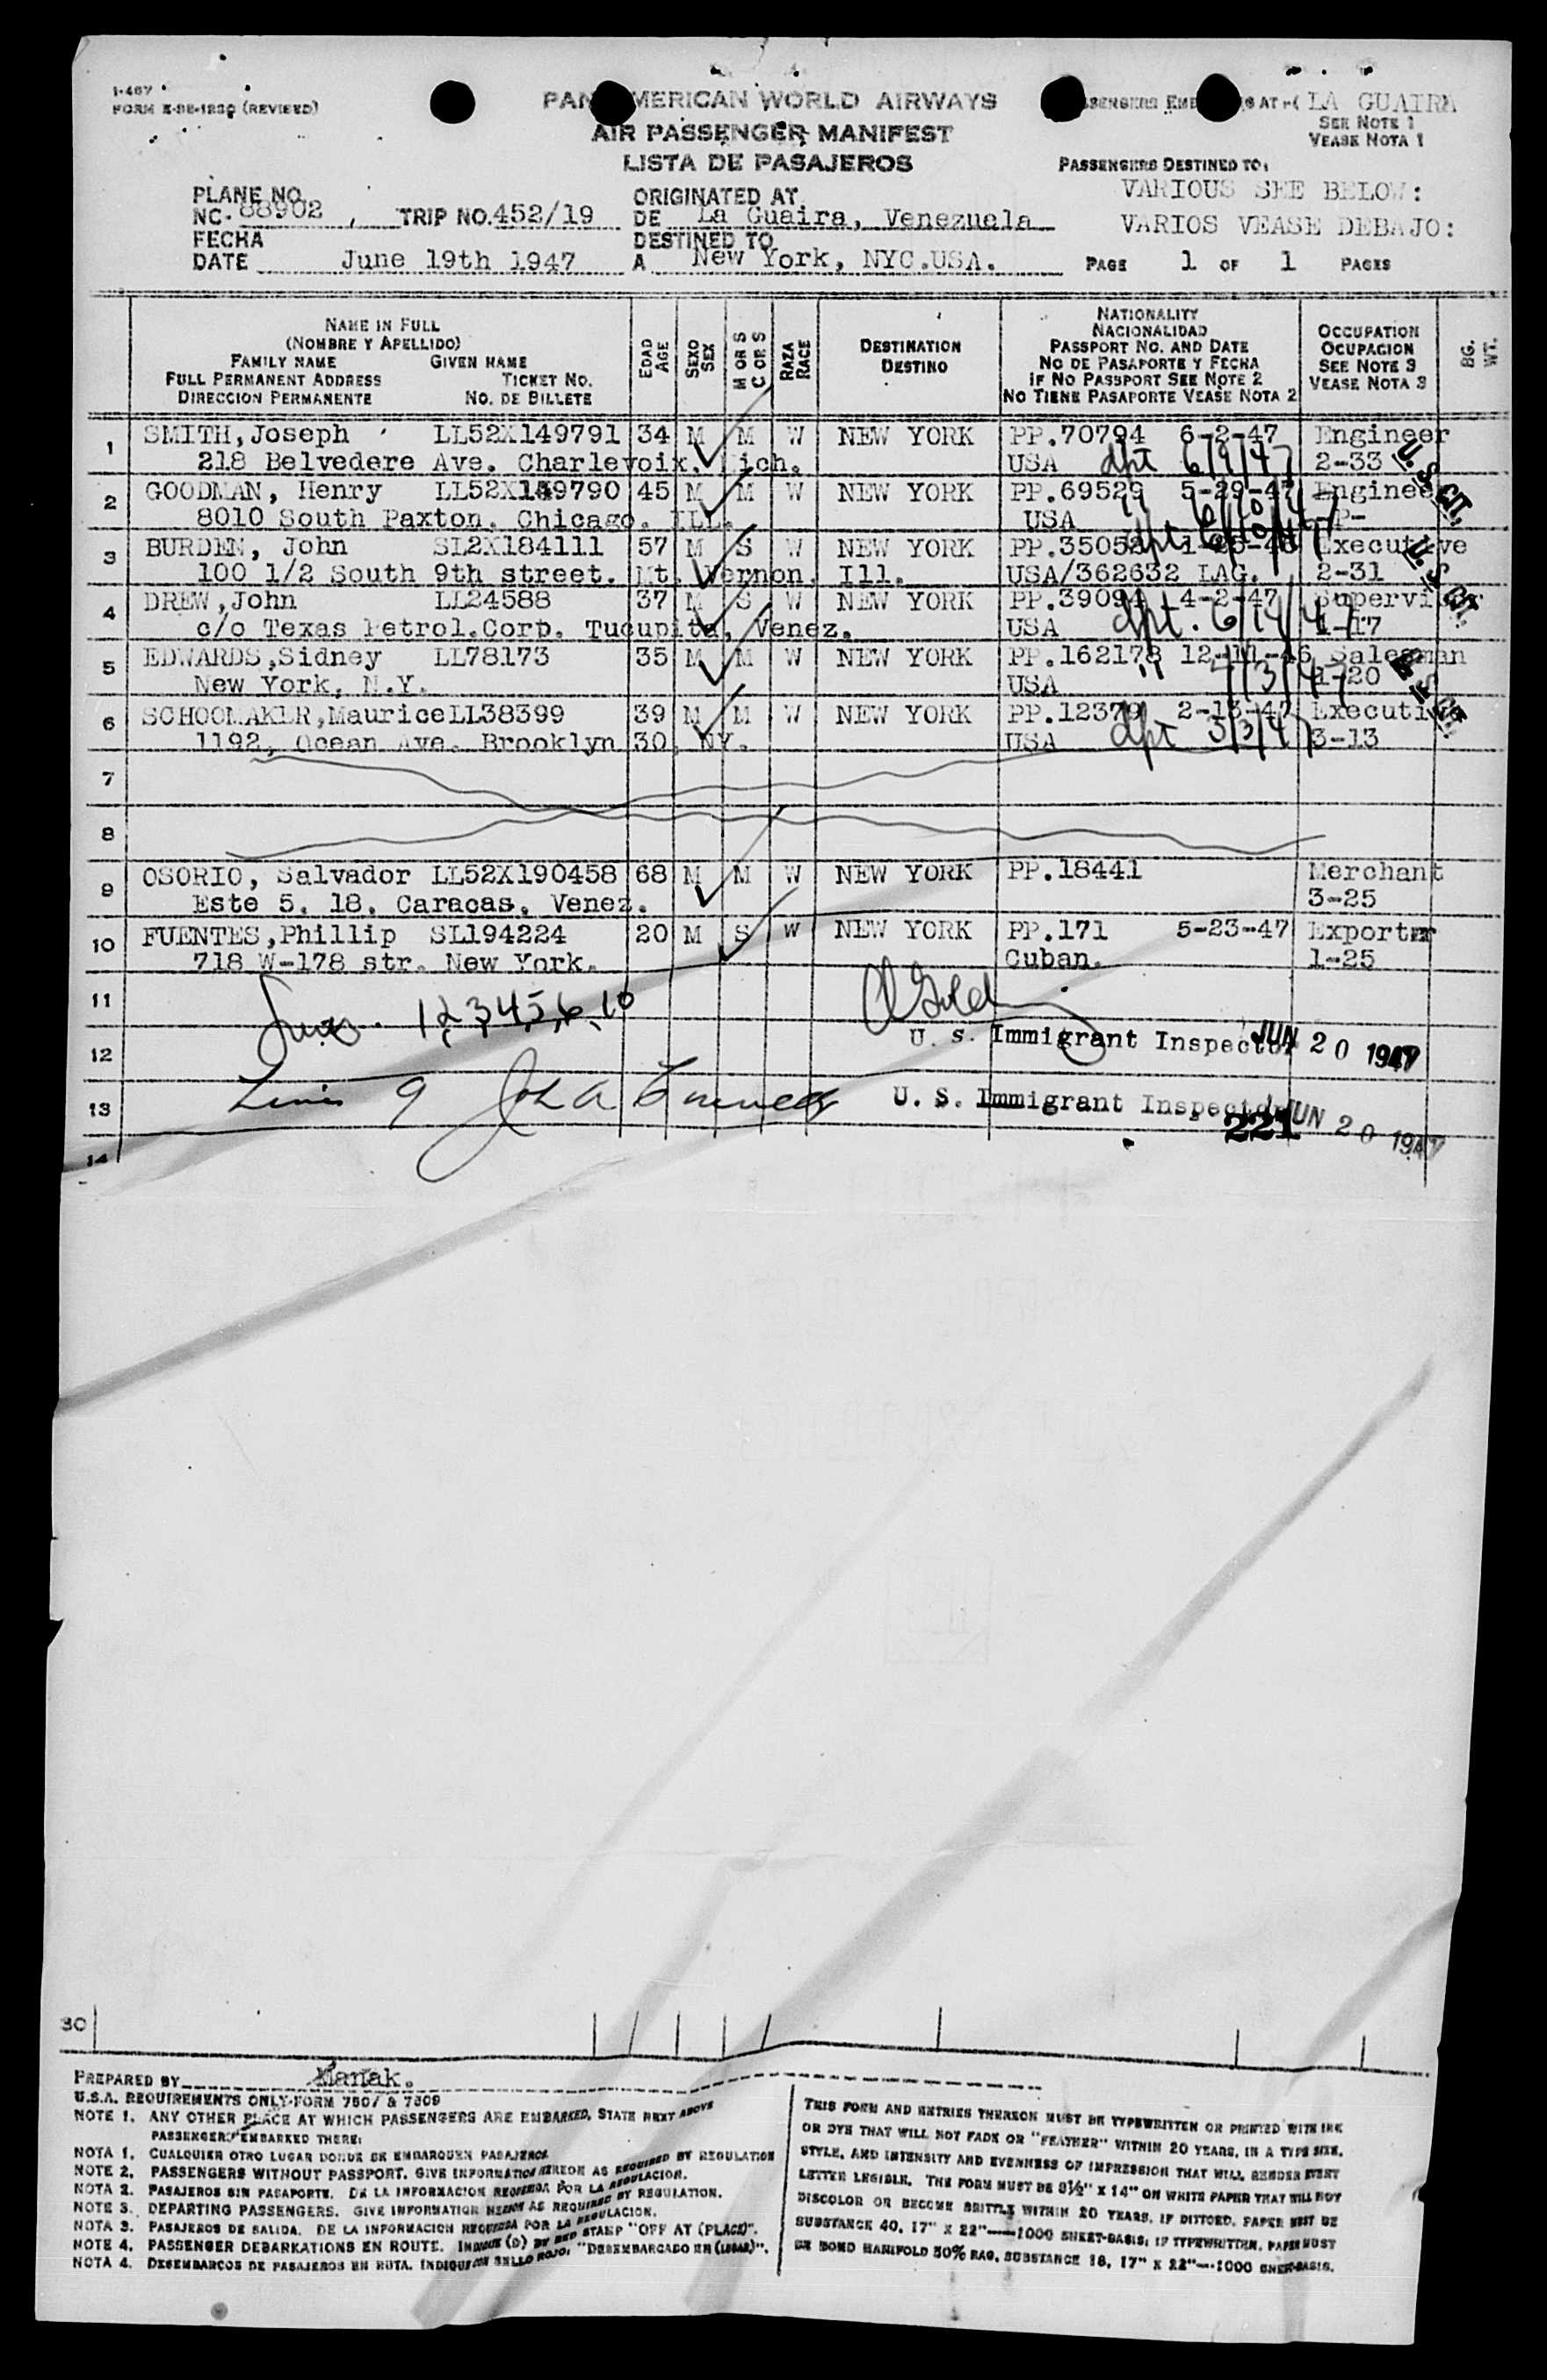 I-467
FORM E-SE-1230 (REVISED)
PAN AMERICAN WORLD AIRWAYS
AIR PASSENGER MANIFEST
LISTA DE PASAJEROS
LA GUAIRA
SEE NOTE 1
VEASE NOTA 1
PASSENGERS DESTINED TO:
VARIOUS SEE BELOW:
VARIOS VEASE DEBAJO:
PLANE NO.
NC- 88902 , TRIP NO. 452/19
FECHA
DATE June 19th 1947
ORIGINATED AT
DE La Guaira, Venezuela
DESTINED TO
A New York, NYC.USA.
PAGE 1 OF 1 PAGES
NAME IN FULL
(NOMBRE Y APELLIDO)
FAMILY NAME GIVEN NAME
FULL PERMANENT ADDRESS TICKET NO.
DIRECCION PERMANENTE NO. DE BILLETE
EDAD
AGE
SEXO
SEX
M OR S
C OR S
RAZA
RACE
DESTINATION
DESTINO
NATIONALITY
NACIONALIDAD
PASSPORT NO. AND DATE
NO DE PASAPORTE Y FECHA
IF NO PASSPORT SEE NOTE 2
NO TIENE PASAPORTE VEASE NOTA 2
OCCUPATION
OCUPACION
SEE NOTE 3
VEASE NOTA 3
BG.
WT.
1 SMITH,Joseph LL52X149791 34 M M W NEW YORK PP.70794 6-2-47 Engineer
218 Belvedere Ave. Charlevoix. Mich. USA dpt 6/9/47 2-33
U.S. CIT.
2 GOODMAN, Henry LL52X149790 45 M M W NEW YORK PP.69529 5-29-47 Engineer
8010 South Paxton. Chicago. ILL. USA " 6/10/47 -P-
3 BURDEN, John SL2X184111 57 M S W NEW YORK PP.35052 Executive
100 1/2 South 9th street. Mt. Vernon. Ill. USA/362632 LAG. 2-31
dpt 6/10/47
U.S. CIT.
4 DREW,John LL24588 37 M S W NEW YORK PP.39094 4-2-47 Supervisor
c/o Texas Petrol.Corp. Tucupita, Venez. USA dpt. 6/14/47 1-17
5 EDWARDS,Sidney LL78173 35 M M W NEW YORK PP.162178 12-11-46 Salesman
New York, N.Y. USA " 4/3/47 1-20
U.S. CIT.
6 SCHOOMAKER,Maurice LL38399 39 M M W NEW YORK PP.12379 2-13-47 Executive
1192, Ocean Ave. Brooklyn 30, NY. USA dpt 3/3/47 3-13
7
8
9 OSORIO, Salvador LL52X190458 68 M M W NEW YORK PP.18441 Merchant
Este 5. 18. Caracas. Venez. 3-25
10 FUENTES,Phillip SL194224 20 M S W NEW YORK PP.171 5-23-47 Exporter
718 W-178 str. New York. Cuban. 1-25
11
1,2,3,4,5,6,10
12 U. S. Immigrant Inspector JUN 20 1947
13 9 U. S. Immigrant Inspector JUN 20 1947
221
14
30
PREPARED BY Manak.
U.S.A. REQUIREMENTS ONLY-FORM 7507 & 7509
NOTE 1. ANY OTHER PLACE AT WHICH PASSENGERS ARE EMBARKED, STATE NEXT ABOVE
PASSENGERS EMBARKED THERE:
NOTA 1. CUALQUIER OTRO LUGAR DONDE SE EMBARQUEN PASAJEROS
NOTE 2. PASSENGERS WITHOUT PASSPORT. GIVE INFORMATION HEREON AS REQUIRED BY REGULATION
NOTA 2. PASAJEROS SIN PASAPORTE. DE LA INFORMACION REQUERIDA POR LA REGULACION.
NOTE 3. DEPARTING PASSENGERS. GIVE INFORMATION HEREON AS REQUIRED BY REGULATION.
NOTA 3. PASAJEROS DE SALIDA. DE LA INFORMACION REQUERIDA POR LA REGULACION.
NOTE 4. PASSENGER DEBARKATIONS EN ROUTE. INDIQUE (D) BY RED STAMP "OFF AT (PLACE)".
NOTA 4. DESEMBARCOS DE PASAJEROS EN RUTA. INDIQUE CON SELLO ROJO: "DESEMBARCADO EN (LUGAR)".
THIS FORM AND ENTRIES THEREON MUST BE TYPEWRITTEN OR PRINTED WITH INK
OR DYE THAT WILL NOT FADE OR "FEATHER" WITHIN 20 YEARS, IN A TYPE SIZE,
STYLE, AND INTENSITY AND EVENNESS OF IMPRESSION THAT WILL RENDER EVERY
LETTER LEGIBLE. THE FORM MUST BE 8½" X 14" ON WHITE PAPER THAT WILL NOT
DISCOLOR OR BECOME BRITTLE WITHIN 20 YEARS. IF DITTOED, PAPER MUST BE
SUBSTANCE 40, 17" X 22"——1000 SHEET-BASIS; IF TYPEWRITTEN, PAPER MUST
BE BOND MANIFOLD 50% RAG, SUBSTANCE 18, 17" X 22"—-1000 SHEET-BASIS.